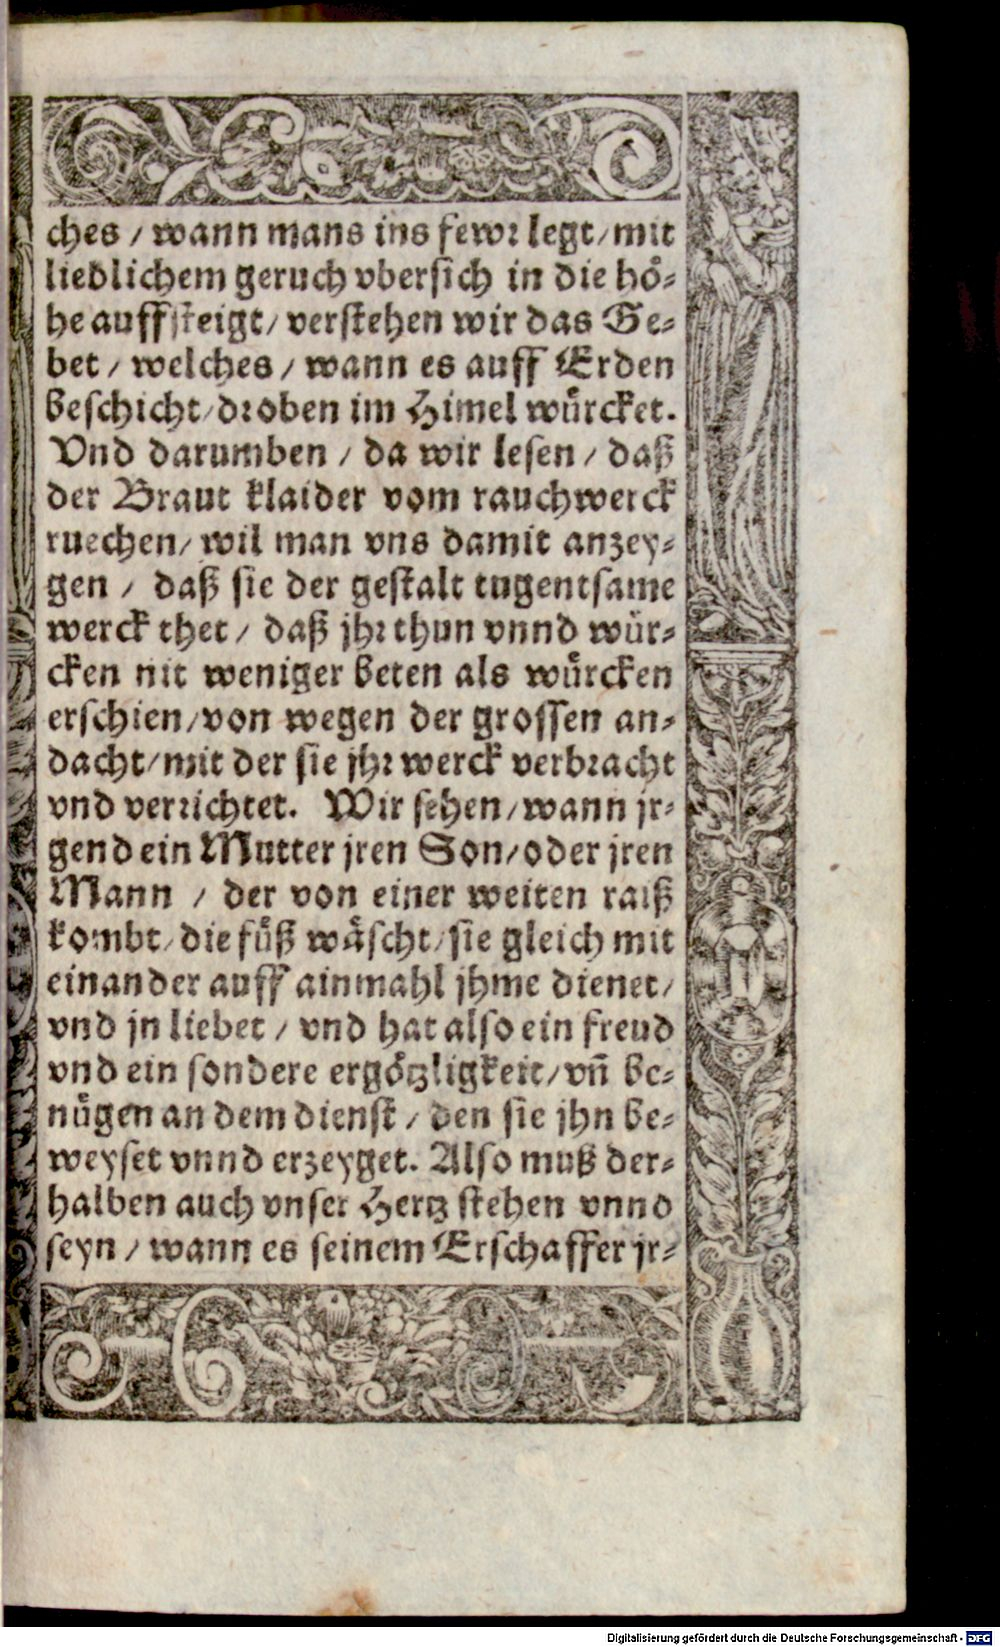 ches / wann mans ins fewr legt / mit
liedlichem geruch vbersich in die hoͤ-
he auffsteigt / verstehen wir das Ge-
bet / welches / wann es auff Erden
beschicht / droben im Himel wuͤrcket.
Vnd darumben / da wir lesen / daß
der Braut klaider vom rauchwerck
ruechen / wil man vns damit anzey-
gen / daß sie der gestalt tugentsame
werck thet / daß jhr thun vnnd wuͤr-
cken nit weniger beten als wuͤrcken
erschien / von wegen der grossen an-
dacht / mit der sie jhr werck verbracht
vnd verrichtet. Wir sehen / wann jr-
gend ein Mutter jren Son / oder jren
Mann / der von einer weiten raiß
kombt / die fuͤß waͤscht / sie gleich mit
einander auff ainmahl jhme dienet /
vnd jn liebet / vnd hat also ein freud
vnd ein sondere ergoͤtzligkeit / vñ be-
nuͤgen an dem dienst / den sie jhn be-
weyset vnnd erzeyget. Also muß der-
halben auch vnser Hertz stehen vnnd
seyn / wann es seinem Erschaffer jr-
Digitalisierung gefördert durch die Deutsche Forschungsgemeinschaft - DFG